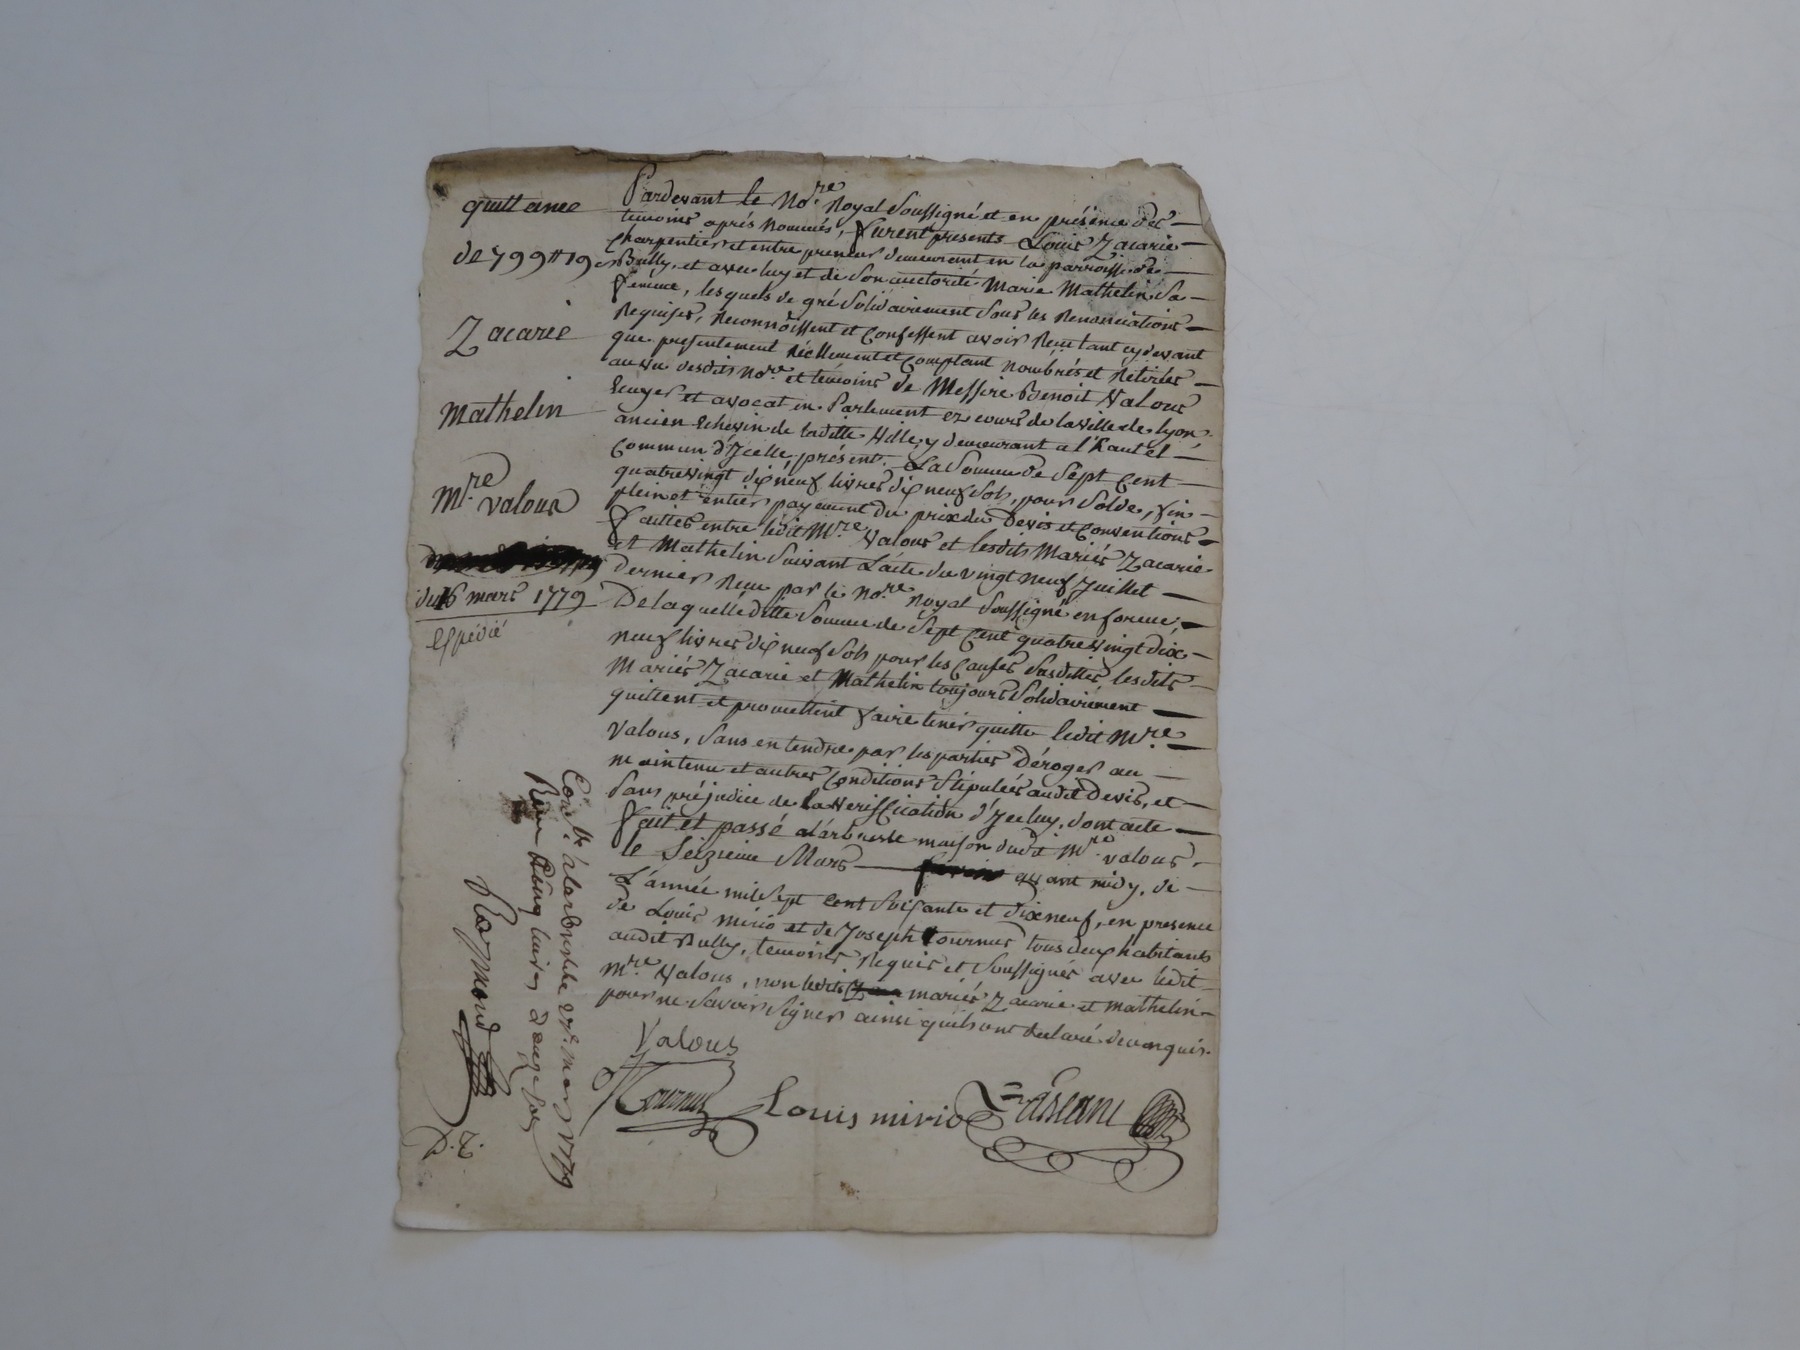 quittance
de 799# 19s
Zacarie
Mathelin
Mre. Valous
du 16 mars 1779
Expédié
Pardevant le Nore. Royal soussigné et en présence des
témoins après nommés, furent presents Louis Zacarie
charpentier et entrepreneur demeurant en la parroisse de
Bully, et avec luy et de son auctorité Marie Mathelin sa
femme, lesquels de gré solidairement sous les Renonciations
Requises, Reconnoissent et Confessent avoir Reçu tant cy devant
que presentement Réellement et Comptant nombrés et Retirés
au vu desdits Nore. et témoins de Messire Benoit Valous
Ecuyer et avocat en Parlement ez cours de la ville de lyon,
ancien Echevin de ladite Ville, y demeurant a l'hautel
Commun d'Icelle, présent. La Somme de Sept Cent
quatrevingt dix neuf livres dix neuf sols, pour Solde, fin
plein et entier payement du prix du Devis et Conventions
faites entre ledit Mre. Valous et lesdits Mariés Zacarie
et Mathelin suivant l'acte du vingt neuf Juillet
dernier Reçu par le Nore. Royal soussigné en forme,
De laquelle ditte Somme de Sept Cent quatrevingt dix
neuf livres dix neuf sols pour les Causes susdittes lesdits
Mariés Zacarie et Mathelin toujours Solidairement
quittent et promettent faire tenir quitte ledit Mre.
Valous, sans entendre par les parties déroger au
maintenu et autres Conditions Stipulées audit Devis, et
sans préjudice de la Veriffication d'Iceluy, dont acte
fait et passé a l'arbresle maison dudit Mre. Valous,
le Seizieme Mars avant midy, de
L'année mil sept cent soixante et dix neuf, en presence
de Louis Mirio et de Joseph Tournus tous deux habitants
audit Bully, temoins Requis et soussignés avec ledit
Mre. Valous, non lesdits mariés Zacarie et Mathelin
pour ne savoir signer ainsi qu'ils ont declaré de ce enquis.
Valous
Tournus Louis mirio
Conlle. à larbresle
Reçu
Raymond